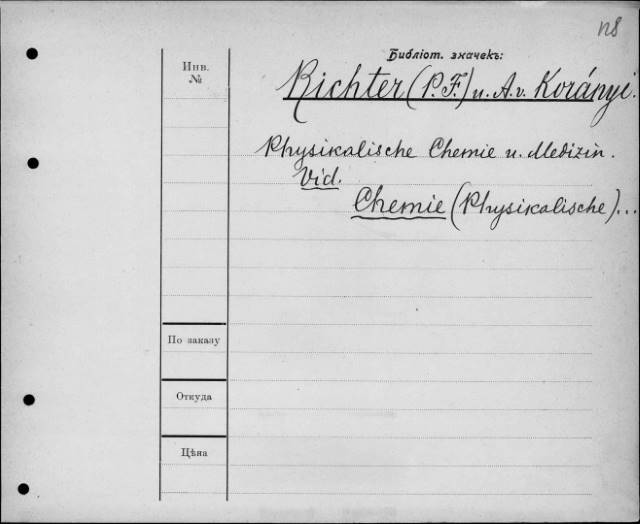 п8
Библіот. значекъ:
Инв.
№
Richter (P. F.) u. A. v. Korányi.
Physikalische Chemie u. Medizin.
Vid.
Chemie (Physikalische)...
По заказу
Откуда
Цѣна